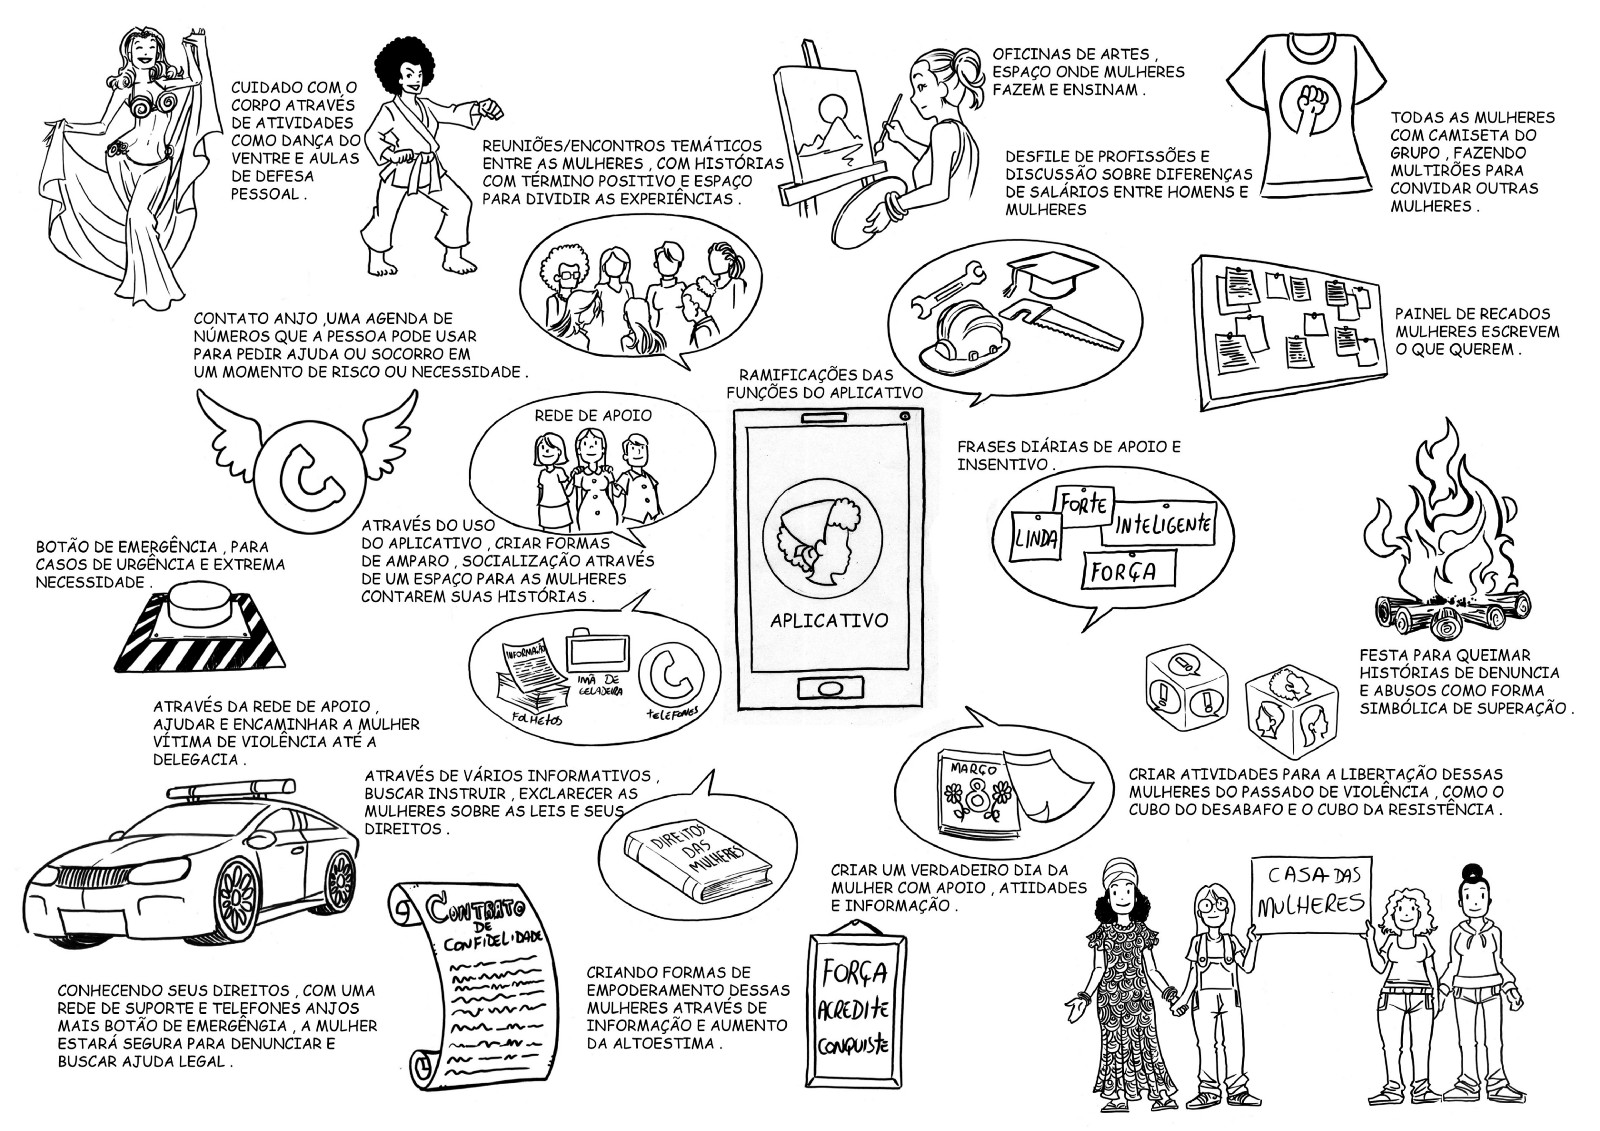 CUIDADO COM O
CORPO ATRAVÉS
DE ATIVIDADES
COMO DANÇA DO
VENTRE E AULAS
DE DEFESA
PESSOAL .
REUNIÕES/ENCONTROS TEMÁTICOS
ENTRE AS MULHERES , COM HISTÓRIAS
COM TÉRMINO POSITIVO E ESPAÇO
PARA DIVIDIR AS EXPERIÊNCIAS .
OFICINAS DE ARTES ,
ESPAÇO ONDE MULHERES
FAZEM E ENSINAM .
DESFILE DE PROFISSÕES E
DISCUSSÃO SOBRE DIFERENÇAS
DE SALÁRIOS ENTRE HOMENS E
MULHERES
TODAS AS MULHERES
COM CAMISETA DO
GRUPO , FAZENDO
MULTIRÕES PARA
CONVIDAR OUTRAS
MULHERES .
CONTATO ANJO ,UMA AGENDA DE
NÚMEROS QUE A PESSOA PODE USAR
PARA PEDIR AJUDA OU SOCORRO EM
UM MOMENTO DE RISCO OU NECESSIDADE .
PAINEL DE RECADOS
MULHERES ESCREVEM
O QUE QUEREM .
RAMIFICAÇÕES DAS
FUNÇÕES DO APLICATIVO
APLICATIVO
REDE DE APOIO
ATRAVÉS DO USO
DO APLICATIVO , CRIAR FORMAS
DE AMPARO , SOCIALIZAÇÃO ATRAVÉS
DE UM ESPAÇO PARA AS MULHERES
CONTAREM SUAS HISTÓRIAS .
FRASES DIÁRIAS DE APOIO E
INSENTIVO .
FORTE
LINDA
INTELIGENTE
FORÇA
BOTÃO DE EMERGÊNCIA , PARA
CASOS DE URGÊNCIA E EXTREMA
NECESSIDADE .
INFORMAÇÃO
FOLHETOS
IMÃ DE
GELADEIRA
TELEFONES
FESTA PARA QUEIMAR
HISTÓRIAS DE DENUNCIA
E ABUSOS COMO FORMA
SIMBÓLICA DE SUPERAÇÃO .
ATRAVÉS DA REDE DE APOIO ,
AJUDAR E ENCAMINHAR A MULHER
VÍTIMA DE VIOLÊNCIA ATÉ A
DELEGACIA .
ATRAVÉS DE VÁRIOS INFORMATIVOS ,
BUSCAR INSTRUIR , EXCLARECER AS
MULHERES SOBRE AS LEIS E SEUS
DIREITOS .
DIREITOS
DAS
MULHERES
MARÇO
8
! ! !
CRIAR ATIVIDADES PARA A LIBERTAÇÃO DESSAS
MULHERES DO PASSADO DE VIOLÊNCIA , COMO O
CUBO DO DESABAFO E O CUBO DA RESISTÊNCIA .
CRIAR UM VERDADEIRO DIA DA
MULHER COM APOIO , ATIIDADES
E INFORMAÇÃO .
CASA DAS
MULHERES
CONTRATO
DE
CONFIDELIDADE
CONHECENDO SEUS DIREITOS , COM UMA
REDE DE SUPORTE E TELEFONES ANJOS
MAIS BOTÃO DE EMERGÊNGIA , A MULHER
ESTARÁ SEGURA PARA DENUNCIAR E
BUSCAR AJUDA LEGAL .
CRIANDO FORMAS DE
EMPODERAMENTO DESSAS
MULHERES ATRAVÉS DE
INFORMAÇÃO E AUMENTO
DA ALTOESTIMA .
FORÇA
ACREDITE
CONQUISTE